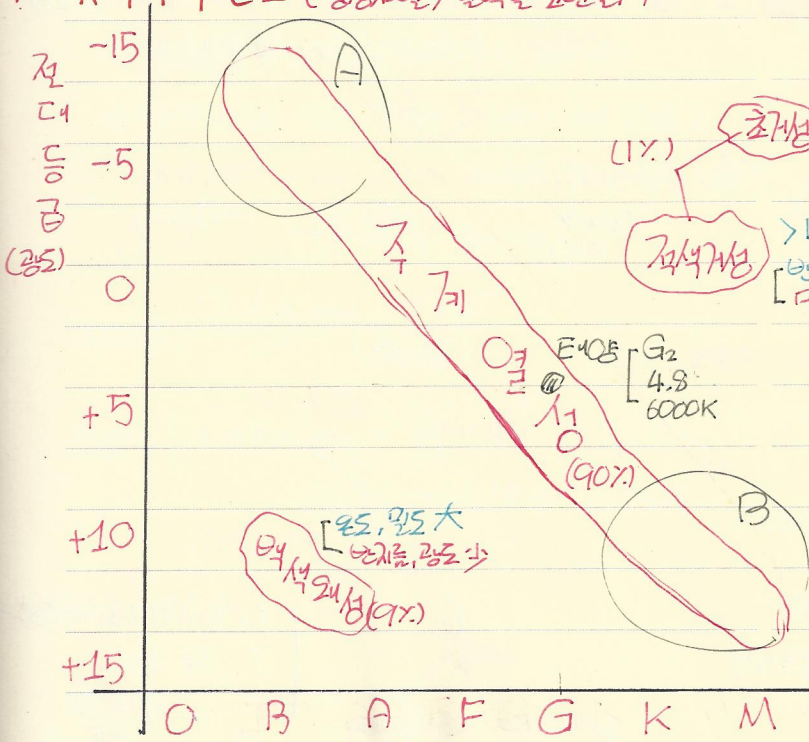 -15
절대등급
(광도)
-5
0
+5
+10
+15
A
(1%)
초거성
적색거성
주계열성
(90%)
태양
G2
4.8
6000K
B
온도, 밀도 大
반지름, 광도 小
백색왜성 (9%)
O B A F G K M